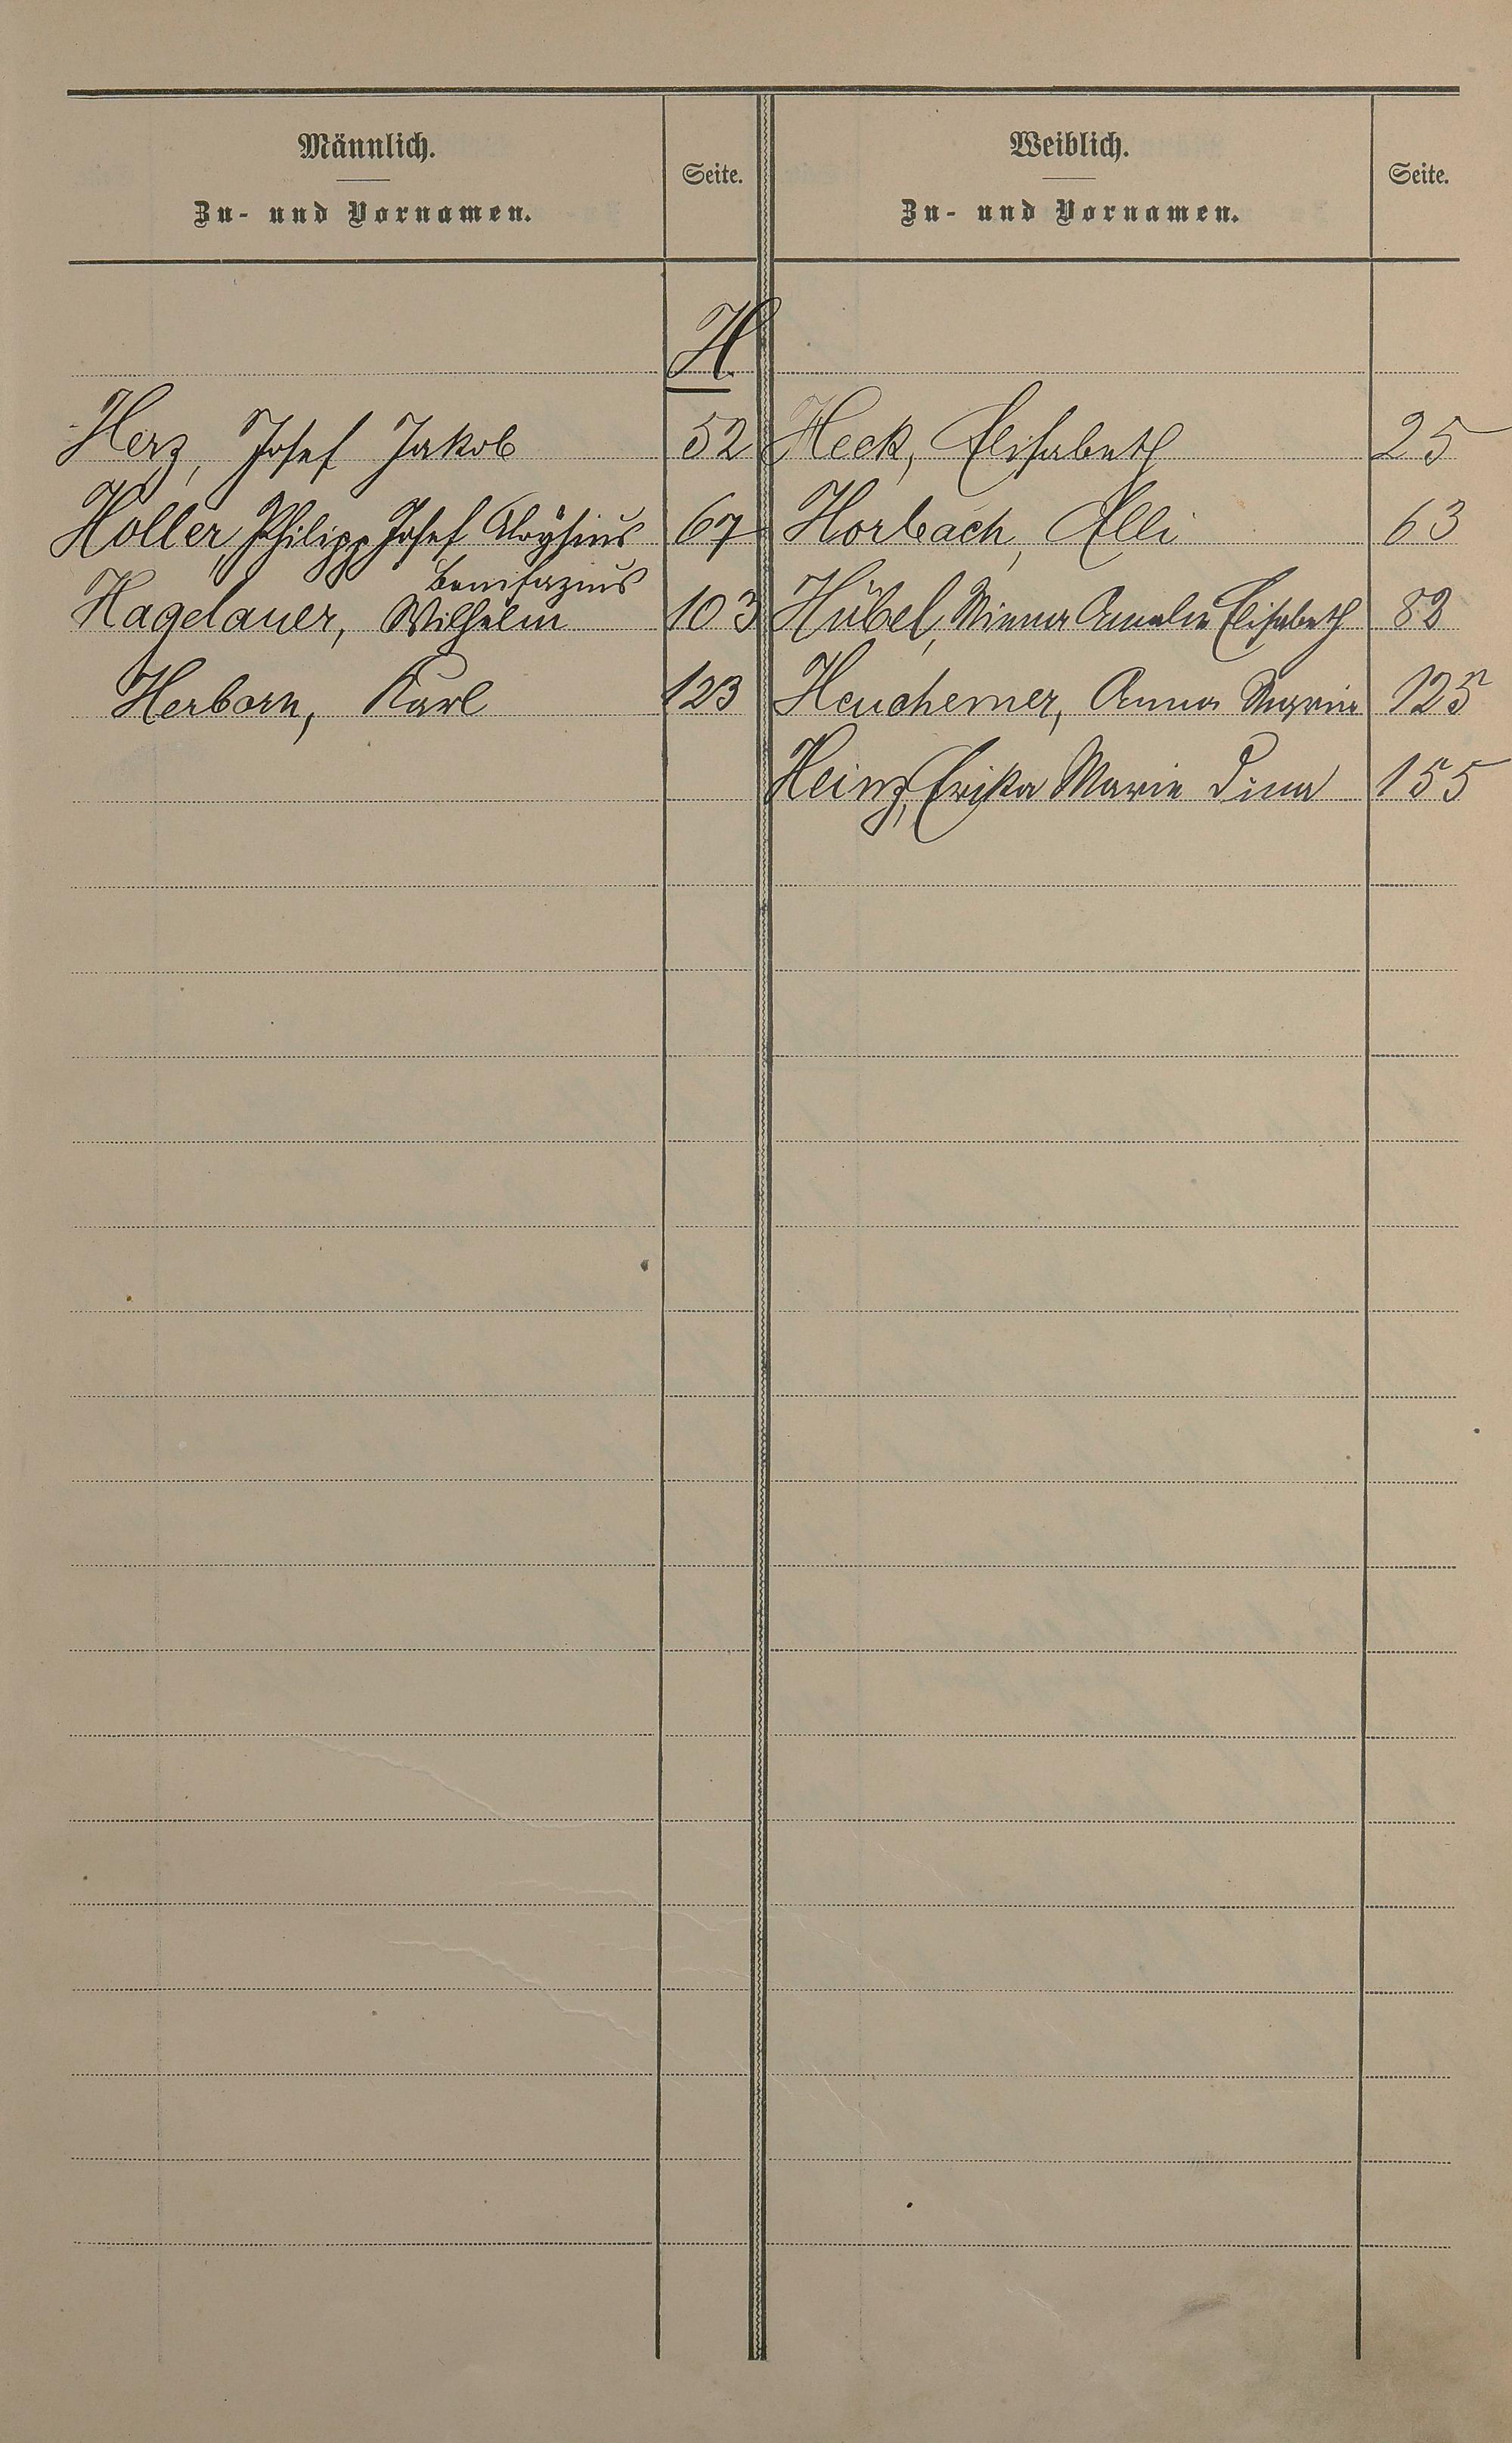 Männlich.
Zu- und Vornamen.
Seite.
Weiblich.
Zu- und Vornamen.
Seite.
H
Herz, Josef Jakob 52 Heck, Elisabeth 25
Holler, Philipp Josef Aloÿsius 67 Horbach, Elli 63
Bonifazius
Hagelauer, Wilhelm 103 Hübel, Minna Amalie Elisabeth 82
Herborn, Karl 123 Heuchemer, Anna Maria 125
Heinz, Erika Marie Dina 155